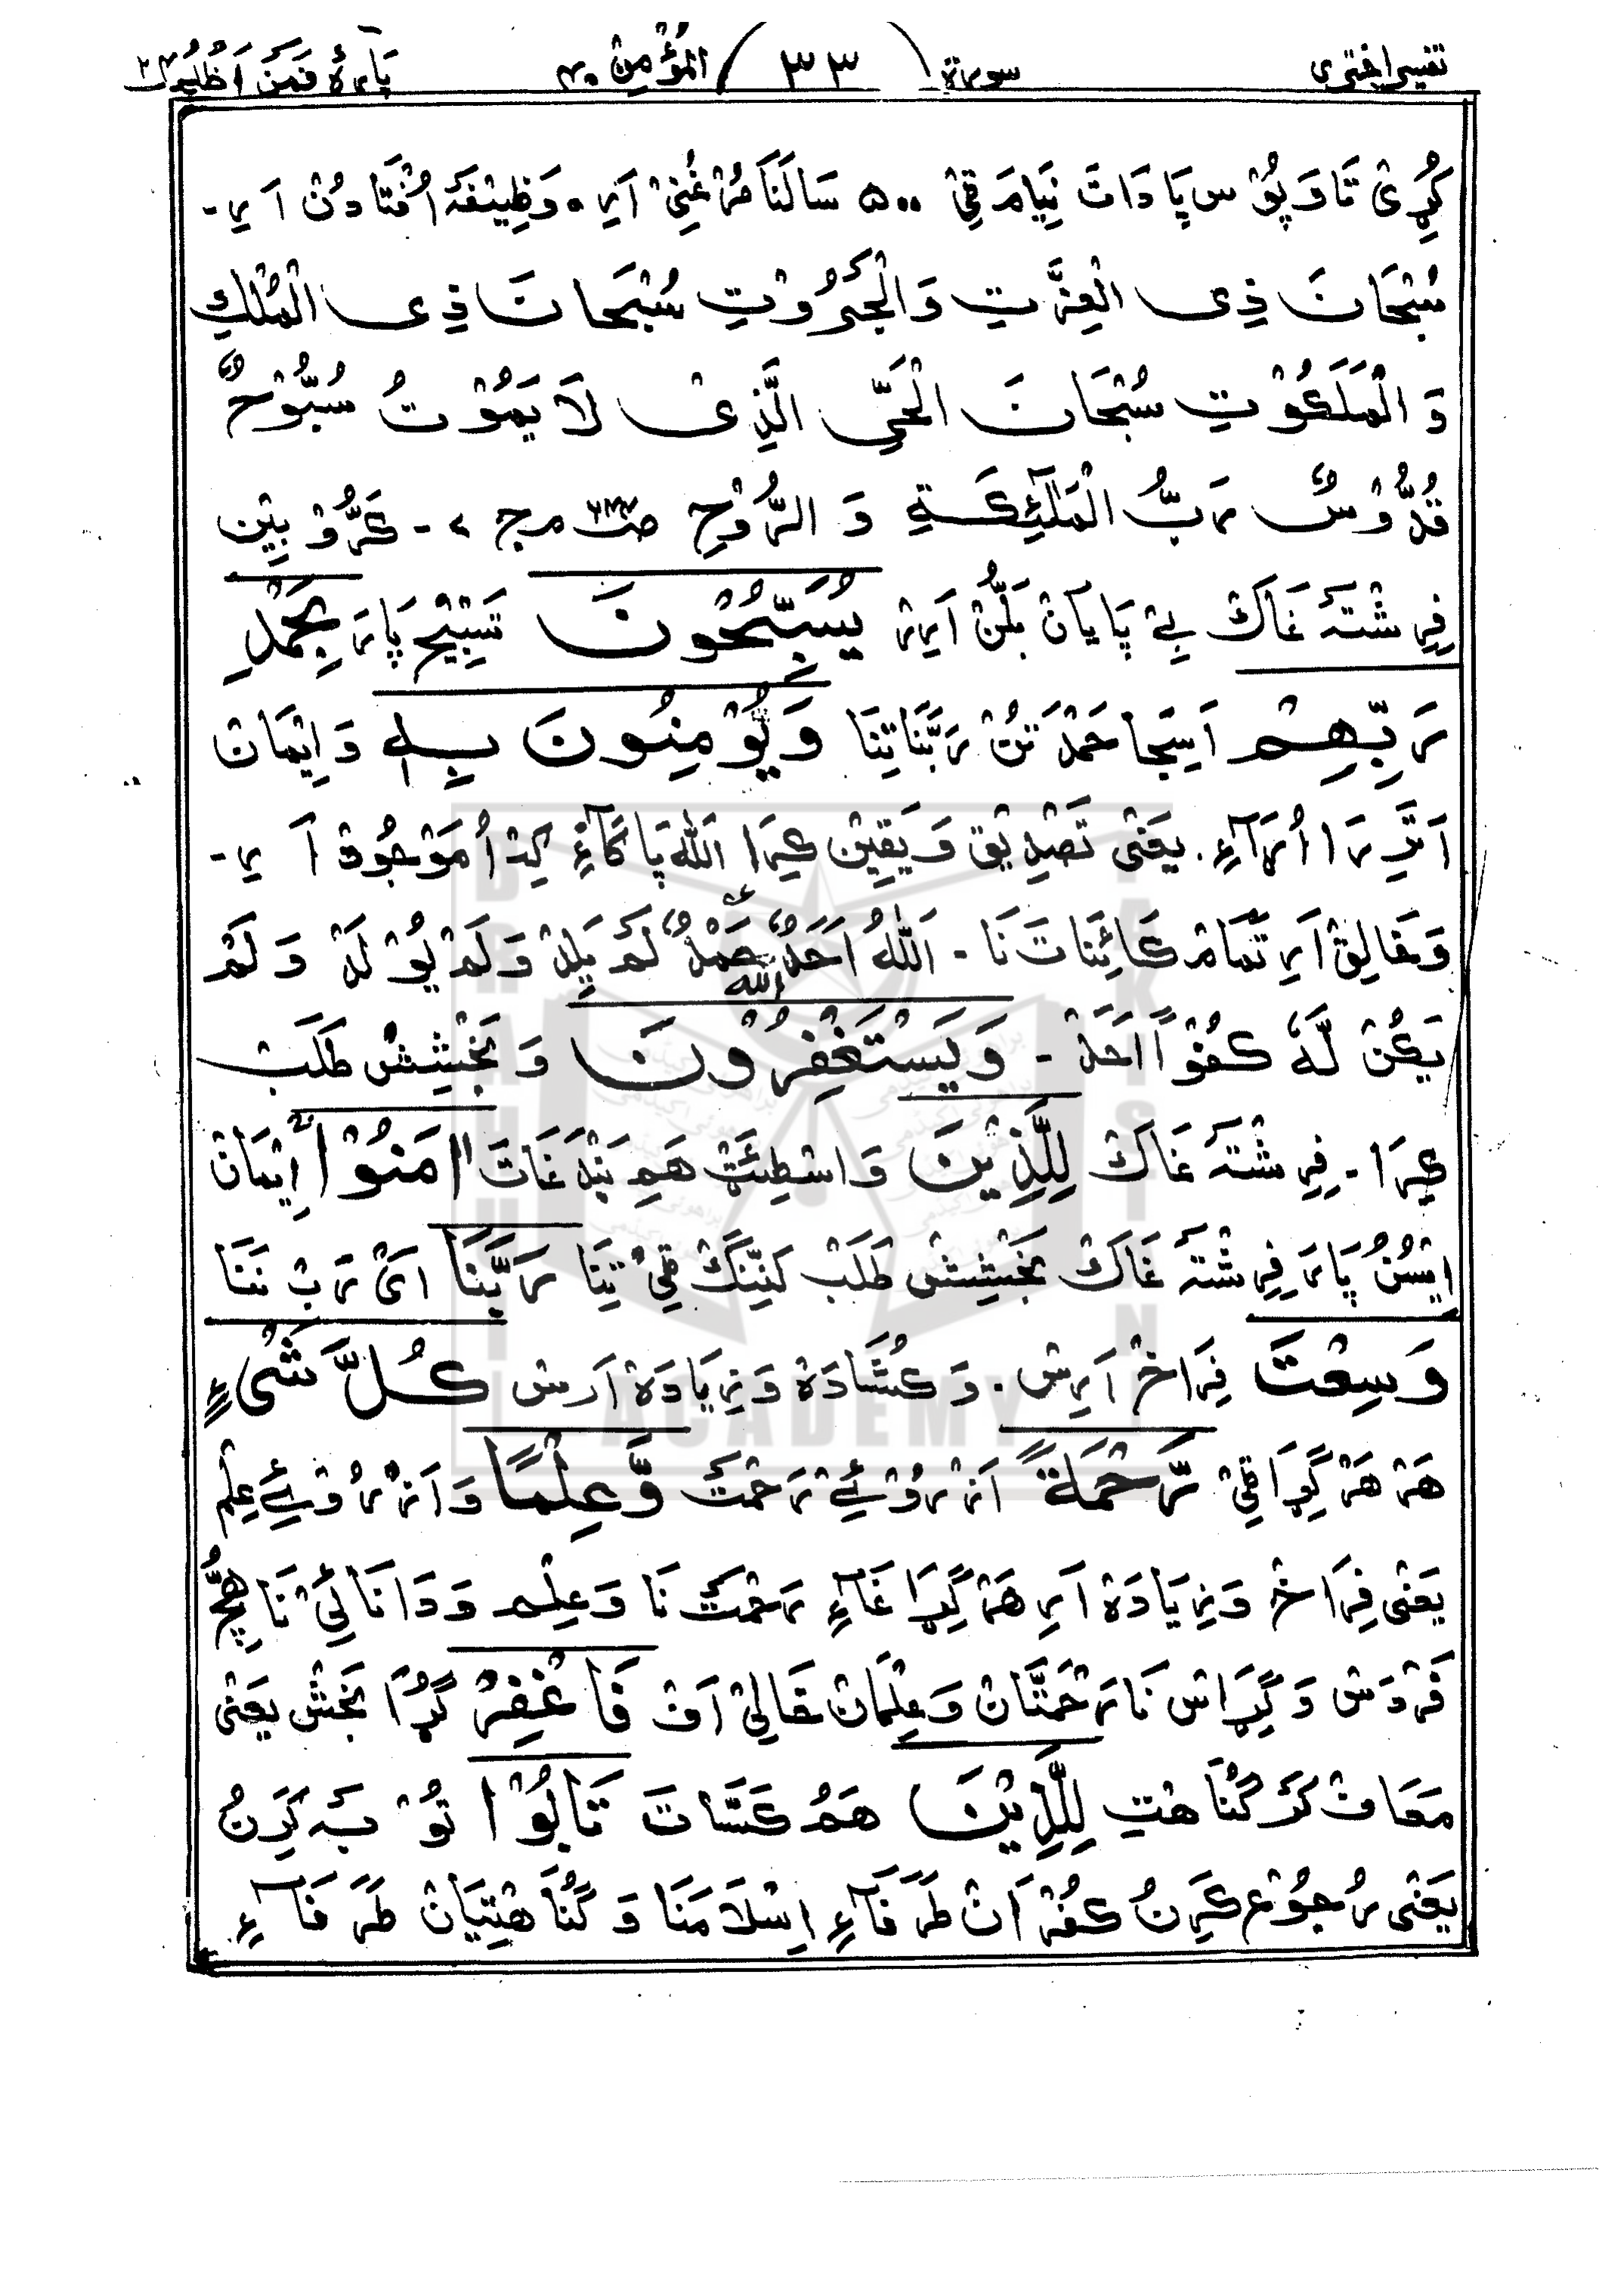 تفسیر اختری سورة (٣٣) المؤمن ٤٠ پارهٔ فَمَنْ اَظْلَمُ ٢٤
کِرِیْ تَا وَ پُوْسِ پَادَاتَ نِیَامَ ٹِیْ ٥٠٠ سَالَنَا مُرْغُنِیْ اَرِ. وَظِیْفَهٔ اُفْتَا دُنْ اَرِ۔
سُبْحَانَ ذِی الْعِزَّتِ وَالْجَبَرُوْتِ سُبْحَانَ ذِی الْمُلْكِ
وَ الْمَلَكُوْتِ سُبْحَانَ الْحَيِّ الَّذِیْ لَا یَمُوْتُ سُبُّوْحٌ
قُدُّوْسٌ رَبُّ الْمَلٰٓئِكَةِ وَ الرُّوْحِ ج ۷ ۔ کَرُّوْ بِیْن
فِرِشْتَهَ غَاكْ بِےْ پَایَانْ بَلُّنْ اَرِیْر یُسَبِّحُوْنَ تَسْبِیْح پَارَ بِحَمْدِ
رَبِّهِمْ اَیْتِجَا حَمْدَ تَنْ رَبَّنَا تِنَا وَیُؤْمِنُوْنَ بِهٖ وَ اِیْمَانْ
اَتِرَا اُرَآءِ. یَعْنٰی تَصْدِیْق وَ یَقِیْن کِرَا اَللّٰه پَاکَآءِ کِهْ اُ مَوْجُوْدْ اَرِ۔
وَ خَالِقْ اَرِ تَمَامْ کَائِنَاتَ نَا ۔ اَللّٰهُ اَحَدٌ اللّٰهُ صَمَدٌ لَمْ یَلِدْ وَ لَمْ یُوْلَدْ وَ لَمْ
یَکُنْ لَّهٗ کُفُوًا اَحَدْ ۔ وَیَسْتَغْفِرُوْنَ وَ بَخْشِشْ طَلَبْ
کِرَا ۔ فِرِشْتَهَ غَاكْ لِلَّذِیْنَ وَاسْطِئَٹْ هَمِ بَنْدَغَاتَ اٰمَنُوْا اِیْمَانْ
اِیْسُنُ پَارَ فِرِشْتَهَ غَاكْ بَخْشِشْ طَلَبْ کَنِنَّكْ ٹِیْ تِنَا رَبَّنَا اَیْ رَبْ نَنَا
وَسِعْتَ فِرَاخْ اَرِسْ. وَ کُشَادَهْ وَ زِیَادَهْ اَرِسْ کُلَّ شَیْءٍ
هَرْ هَرْ گِرَا ٹِیْ رَّحْمَةً اَزْ رُوْئِےْ رَحْمَتْ وَّعِلْمًا وَ اَزْ رُوْئِےْ عِلِمْ
یَعْنٰی فِرَاخْ وَ زِیَادَهْ اَرِ هَرْ گِرَا غَآءِ رَحْمَتَ نَا وَ عِلِمْ وَ دَانَائِیْ نَا هِچُّ
فَرْدَسْ وَ گِرَاسْ نَا رَحْمَتَانْ وَ عِلْمَانْ خَالِیْ اَفْ فَاغْفِرْ گُرَا بَخْشْ یَعْنٰی
مَعَافْ کَرْ گُنَاهْتِ لِلَّذِیْنَ هَمُ کَسَّاتَ تَابُوْا تَوْبَهْ کَرِنُ
یَعْنٰی رُجُوْع کَرِنُ کُفُرْ اَنْ طَرَ فَآءِ اِسْلَامَنَا وَ گُنَاهْتِیَانْ طَرَ فَآءِ